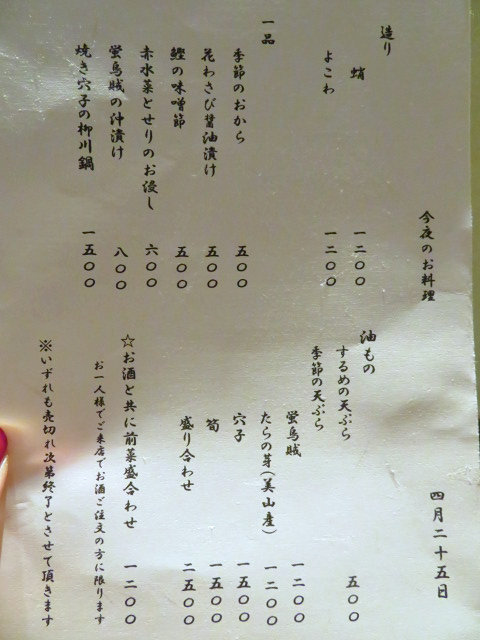 今夜のお料理
四月二十五日
造り
蛸 一二〇〇
よこわ 一二〇〇
一品
季節のおから 五〇〇
花わさび醤油漬け 五〇〇
鰹の味噌節 五〇〇
赤水菜とせりのお浸し 六〇〇
蛍烏賊の沖漬け 八〇〇
焼き穴子の柳川鍋 一五〇〇
油もの
するめの天ぷら 五〇〇
季節の天ぷら
蛍烏賊 一二〇〇
たらの芽(美山産) 一二〇〇
穴子 一五〇〇
筍 一五〇〇
盛り合わせ 二五〇〇
☆お酒と共に前菜盛合わせ 一二〇〇
お一人様でご来店でお酒ご注文の方に限ります
※いずれも売切れ次第終了とさせて頂きます